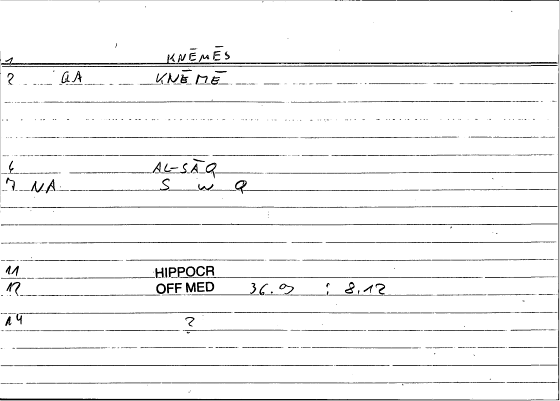 1 KNĒMĒS
2 GA KNĒMĒ
6 AL-SĀQ
7 NA S W Q
11 HIPPOCR
12 OFF MED 36.9 : 8.12
14 2